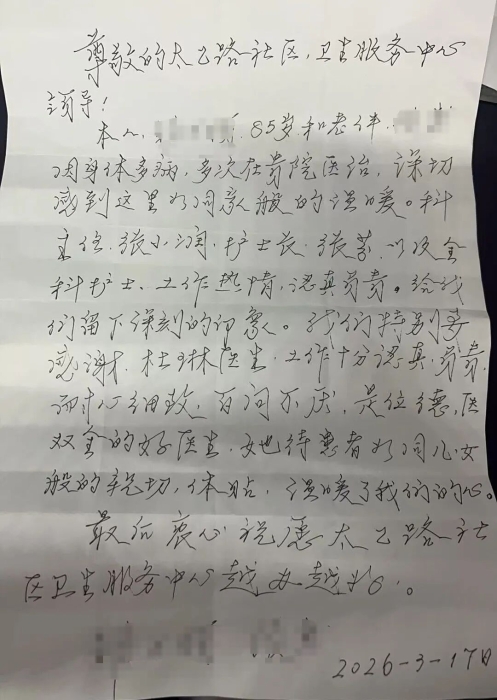 尊敬的太乙路社区卫生服务中心
领导！
本人 85岁和老伴
因身体多病，多次在贵院医治，深切
感到这里如同家般的温暖。科
主任张小润，护士长张 以及全
科护士、工作热情，认真负责。给我
们留下深刻的印象。我们特别要
感谢杜琳医生，工作十分认真负责，
而 心细致，百问不厌，是位德，医
双全的好医生，她待患者如同儿女
般的亲切，体贴，温暖了我们的心。
最后衷心祝愿太乙路社
区卫生服务中心越办越好。
2026-3-17日